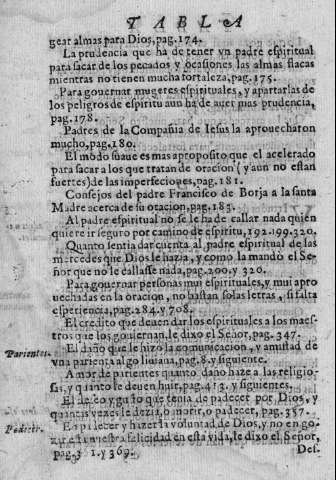 TABLA
gear almas para Dios, pag. 174.
La prudencia que ha de tener vn padre espiritual
para sacar de los pecados y ocasiones las almas flacas
mientras no tienen mucha fortaleza, pag. 175.
Para gouernar mugeres espirituales, y apartarlas de
los peligros de espiritu aun ha de auer mas prudencia,
pag. 178.
Padres de la Compañia de Iesus la aprouecharon
mucho, pag. 180.
El modo suaue es mas aproposito que el acelerado
para sacar a los que tratan de oracion (y aun no estan
fuertes) de las imperfeciones, pag. 181.
Consejos del padre Francisco de Borja a la santa
Madre acerca de su oracion, pag. 183.
Al padre espiritual no se le ha de callar nada quien
quiere ir seguro por camino de espiritu, 192. 199. 320.
Quanto sentia dar cuenta al padre espiritual de las
mercedes que Dios le hazia, y como la mandò el Se-
ñor que no le callasse nada, pag. 200. y 320.
Para gouernar personas mui espirituales, y mui apro
uechadas en la oracion, no bastan solas letras, si falta
esperiencia, pag. 284. y 708.
El credito que deuen dar los espirituales a los maes-
tros que los gouiernan, le dixo el Señor, pag. 347.
Parientes. El daño que le hizo la comunicacion, y amistad de
vna parienta algo liuiana, pag. 8. y siguiente.
Amor de parientes quanto daño haze a las religio-
sas, y quanto le deuen huir, pag. 413. y siguientes.
El deseo y gusto que tenia de padecer por Dios, y
quantas vezes le dezia, o morir, o padecer, pag. 357.
Padecer. En padecer y hazer la voluntad de Dios, y no en go-
zar està nuestra felicidad en esta vida, le dixo el Señor,
y 369.
Def.